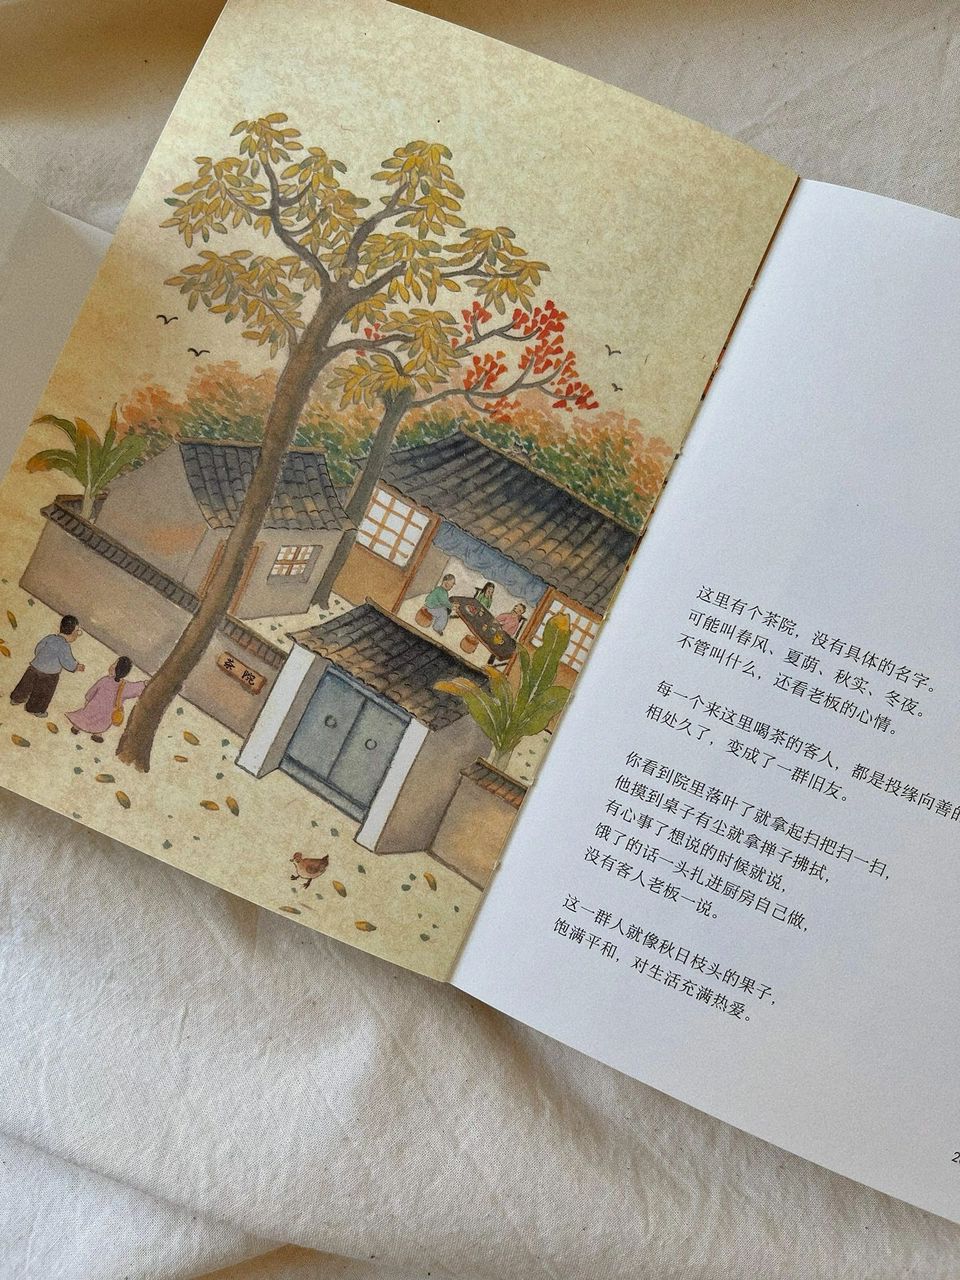 茶院
这里有个茶院，没有具体的名字。
可能叫春风、夏荫、秋实、冬夜。
不管叫什么，还看老板的心情。
每一个来这里喝茶的客人，都是投缘向善的
相处久了，变成了一群旧友。
你看到院里落叶了就拿起扫把扫一扫，
他摸到桌子有尘就拿掸子拂拭，
有心事了想说的时候就说，
饿了的话一头扎进厨房自己做，
没有客人老板一说。
这一群人就像秋日枝头的果子，
饱满平和，对生活充满热爱。